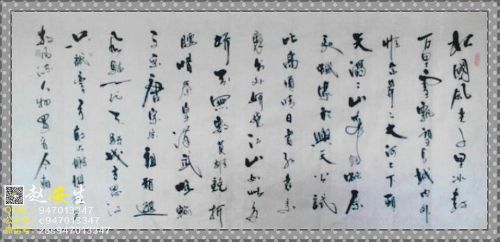 北國風光千里冰封
万里雪飘望长城内外
惟余莽莽大河上下顿
失滔滔山舞银蛇原
驰蜡象欲與天公試
比高須晴日看红装素
裹分外妖娆江山如此多
娇引無數英雄競折
腰惜秦皇漢武略輸
文采唐宗宋祖稍遜
风骚一代天骄成吉思汗
只識弯弓射大雕
数风流人物還看今朝
赵安生
947013347
c947013347
zas947013347